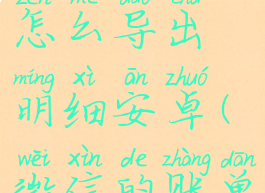 zěn me dǎo chū
怎么导出
míng xì ān zhuó
明细安卓(
wēi xìn de zhàng dān
微信的账单